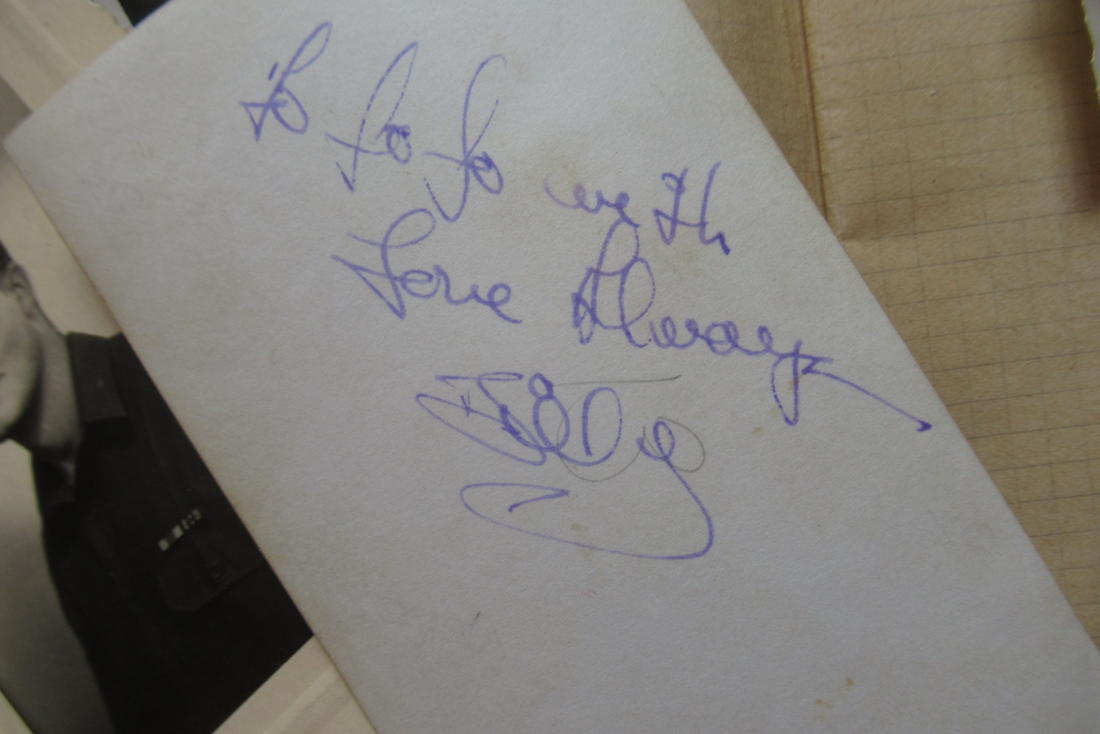 To Jo Jo with
Love Always